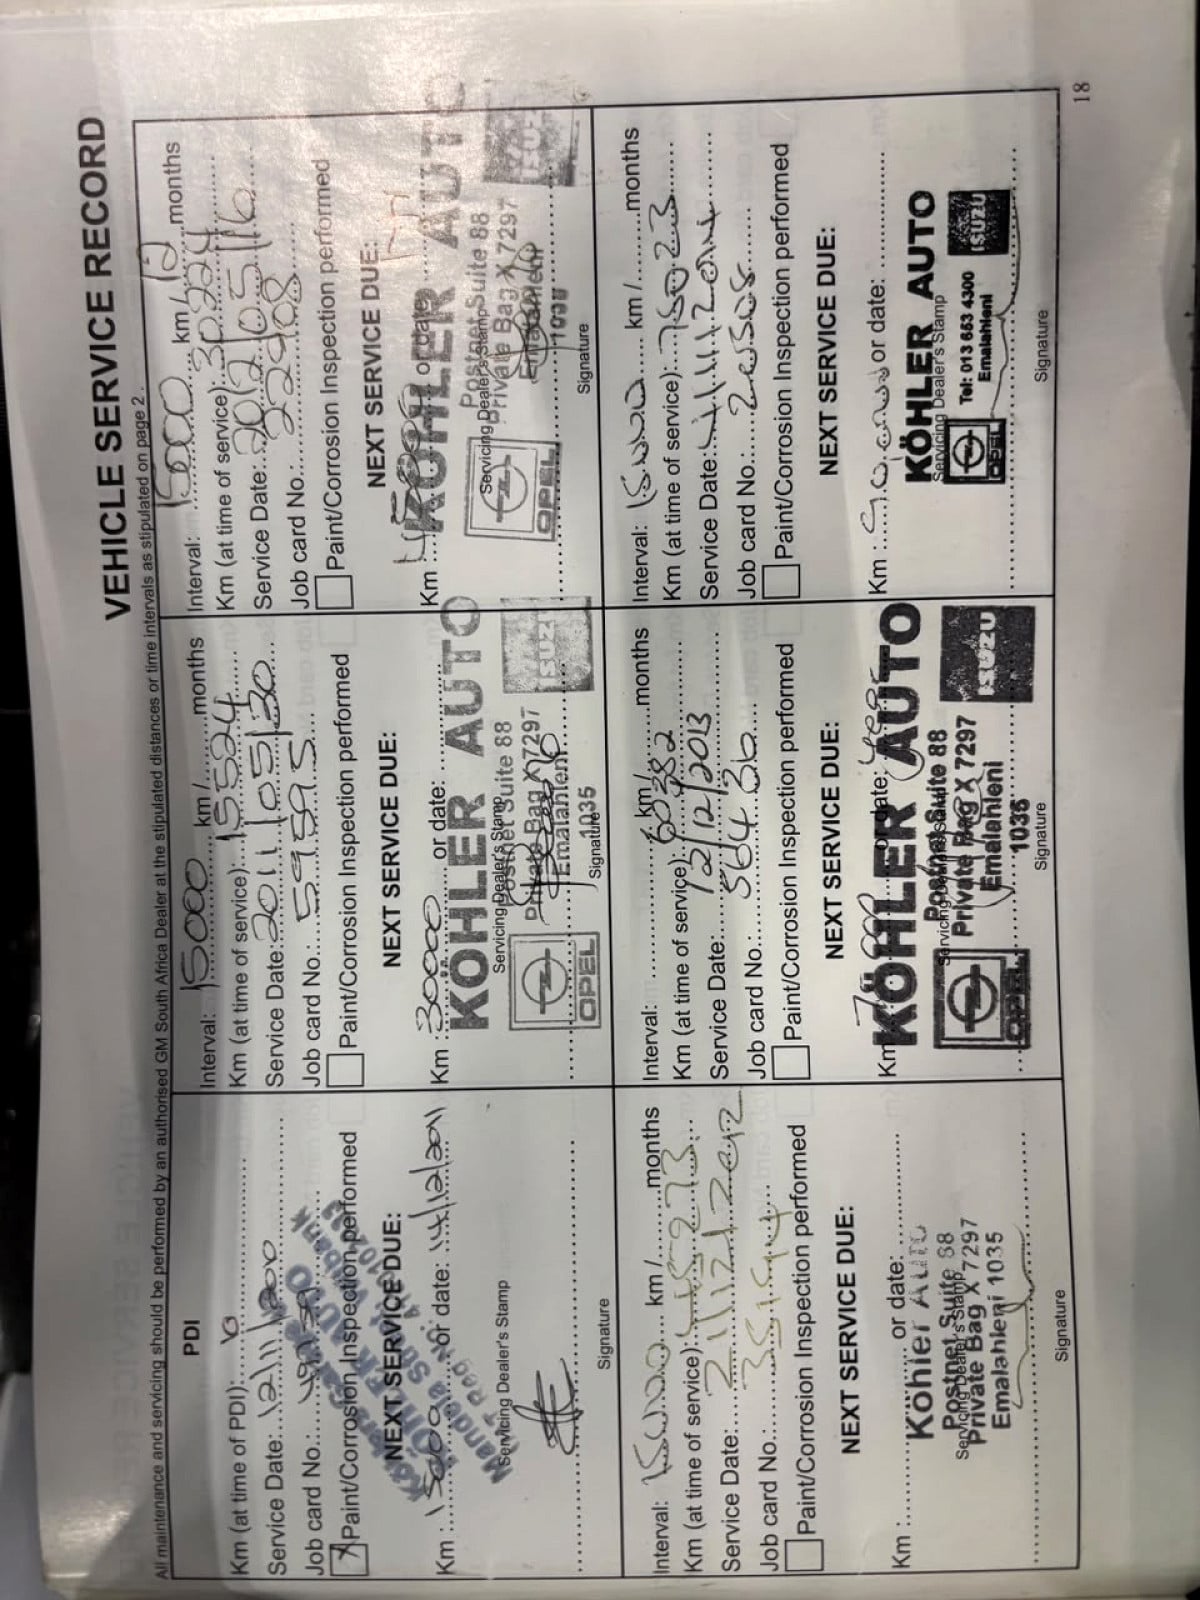 VEHICLE SERVICE RECORD
All maintenance and servicing should be performed by an authorised GM South Africa Dealer at the stipulated distances or time intervals as stipulated on page 2.
PDI
Km (at time of PDI):
Service Date:
Job card No.:
Paint/Corrosion Inspection performed
NEXT SERVICE DUE:
Km : 15000 or date: 14/12/2011
Servicing Dealer's Stamp
Signature
Interval: 15000 km / months
Km (at time of service): 15524
Service Date: 2011/05/30
Job card No.: 59595
Paint/Corrosion Inspection performed
NEXT SERVICE DUE:
Km : 30000 or date:
KÖHLER AUTO
Servicing Dealer's Stamp
Postnet Suite 88
Private Bag X7297
Emalahleni
1035
OPEL
ISUZU
Signature
Interval: 15000 km / 12 months
Km (at time of service): 30224
Service Date: 2012/05/16
Job card No.: 22908
Paint/Corrosion Inspection performed
NEXT SERVICE DUE:
Km : 45000 or date:
KÖHLER AUTO
Postnet Suite 88
Servicing Dealer's Stamp
Private Bag X 7297
Emalahleni
1035
OPEL
ISUZU
Signature
Interval: km / months
Km (at time of service): 45273
Service Date: 2012
Job card No.:
Paint/Corrosion Inspection performed
NEXT SERVICE DUE:
Km : or date:
Kohler Auto
Postnet Suite 88
Servicing Dealer's Stamp
Private Bag X 7297
Emalahleni 1035
Signature
Interval: km / months
Km (at time of service): 60382
Service Date: 12/12/2013
Job card No.: 56436
Paint/Corrosion Inspection performed
NEXT SERVICE DUE:
Km : or date:
KÖHLER AUTO
Postnet Suite 88
Servicing Dealer's Stamp
Private Bag X 7297
Emalahleni
1035
OPEL
ISUZU
Signature
Interval: km / months
Km (at time of service): 75023
Service Date:
Job card No.:
Paint/Corrosion Inspection performed
NEXT SERVICE DUE:
Km : or date:
KÖHLER AUTO
Servicing Dealer's Stamp
Tel: 013 663 4300
Emalahleni
OPEL
ISUZU
Signature
18